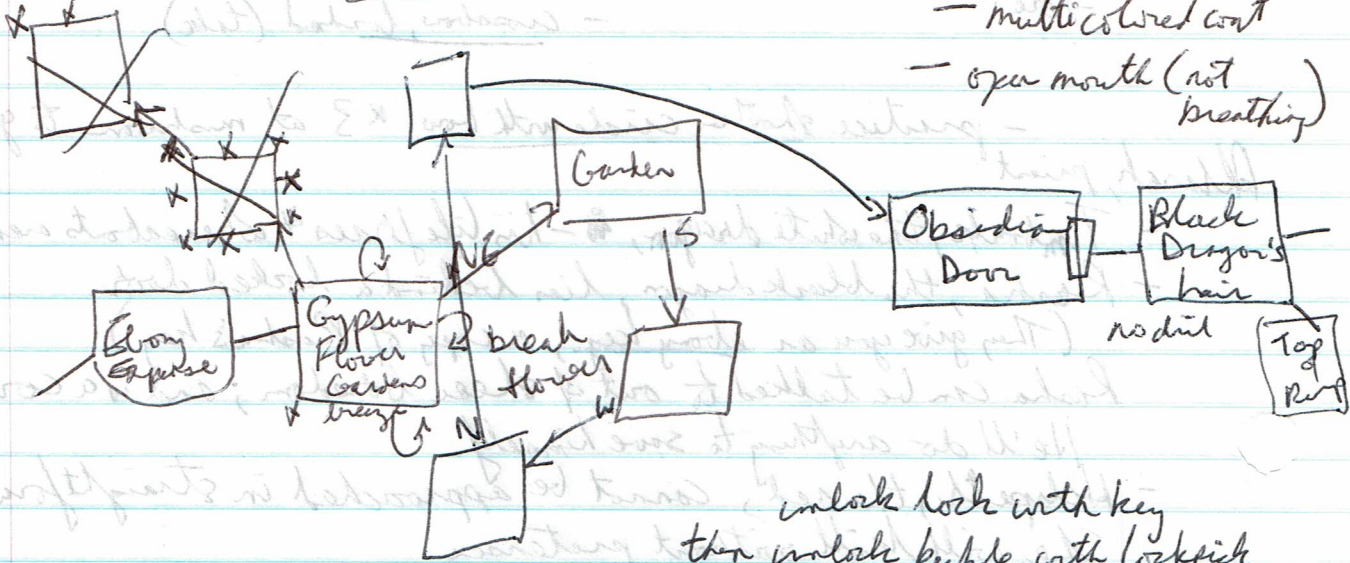 — multicolored coat
— open mouth (not
breathing)
Garden
S
NE
Obsidian
Door
Black
Dragon's
hair
no dirt
Top
of
Ebony
Expanse
Gypsum
Flower
Gardens
breeze
break
flower
W
N
unlock lock with key
then unlock with lockpick